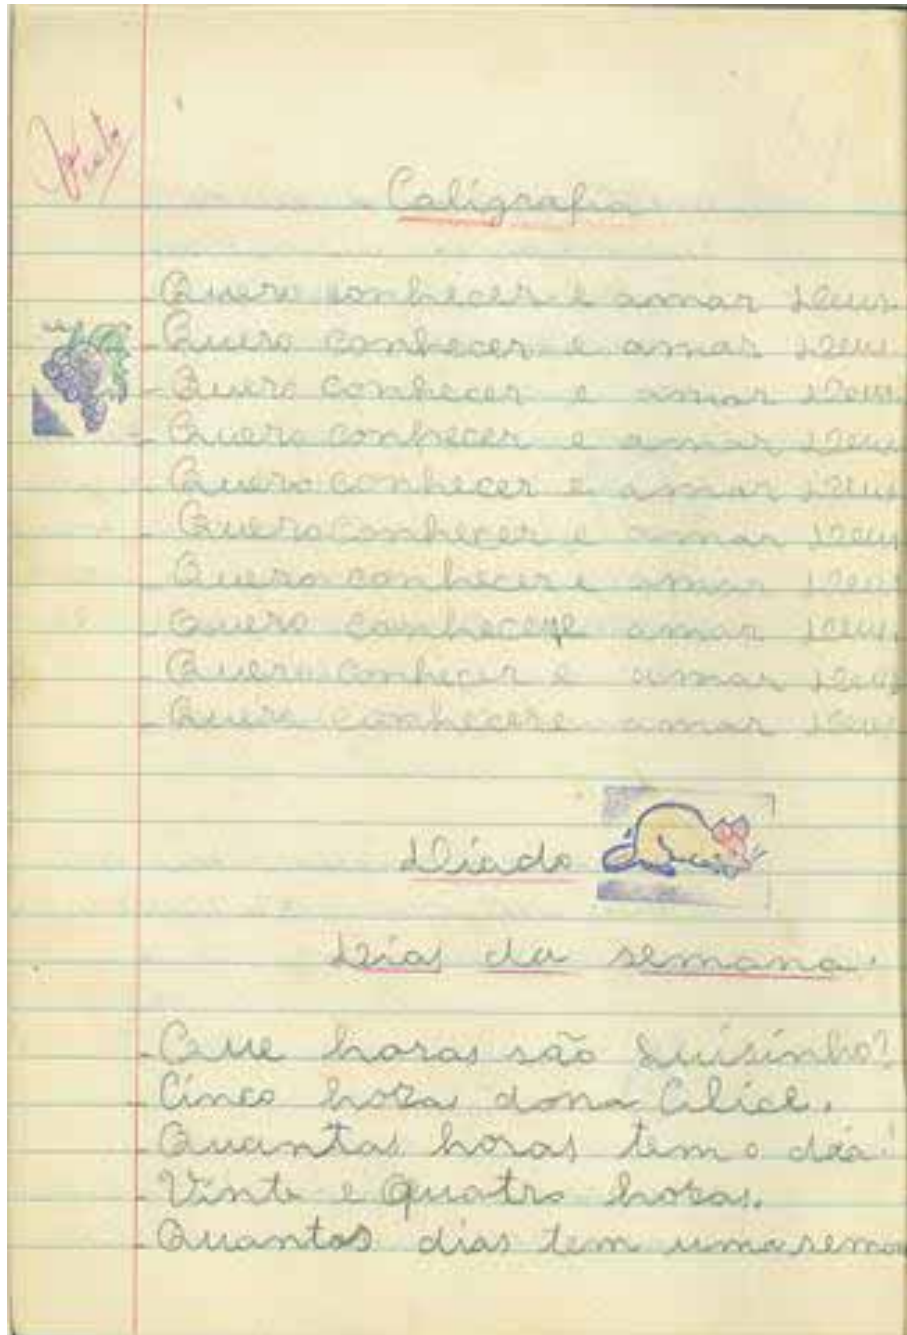 Caligrafia
Quero conhecer e amar Deus.
Quero conhecer e amar Deus.
Quero conhecer e amar Deus.
Quero conhecer e amar Deus
Quero conhecer e amar Deus
Quero conhecer e amar Deus
Quero conhecer e amar Deus
Quero conhecer e amar Deus.
Quero conhecer e amar Deus
Quero conhecer e amar Deus
Ditado
Dias da semana.
Que horas são Luisinho?
Cinco horas dona Alice.
Quantas horas tem o dia?
Vinte e Quatro horas.
Quantos dias tem uma sema